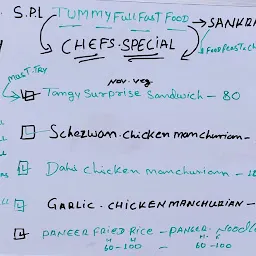 S.P.L TUMMY Full FAST FOOD → SANKRA
CHEFS.SPECIAL
MUST.TRY
NON.VEG
TANGY SURPRISE SANDWICH - 80
Schezwan.chicken manchurian -
Dahi chicken manchurian -
GARLIC.CHICKEN MANCHURIAN -
PANEER FRIED RICE - PANEER NOODLE
H F H F
60-100 - 60-100